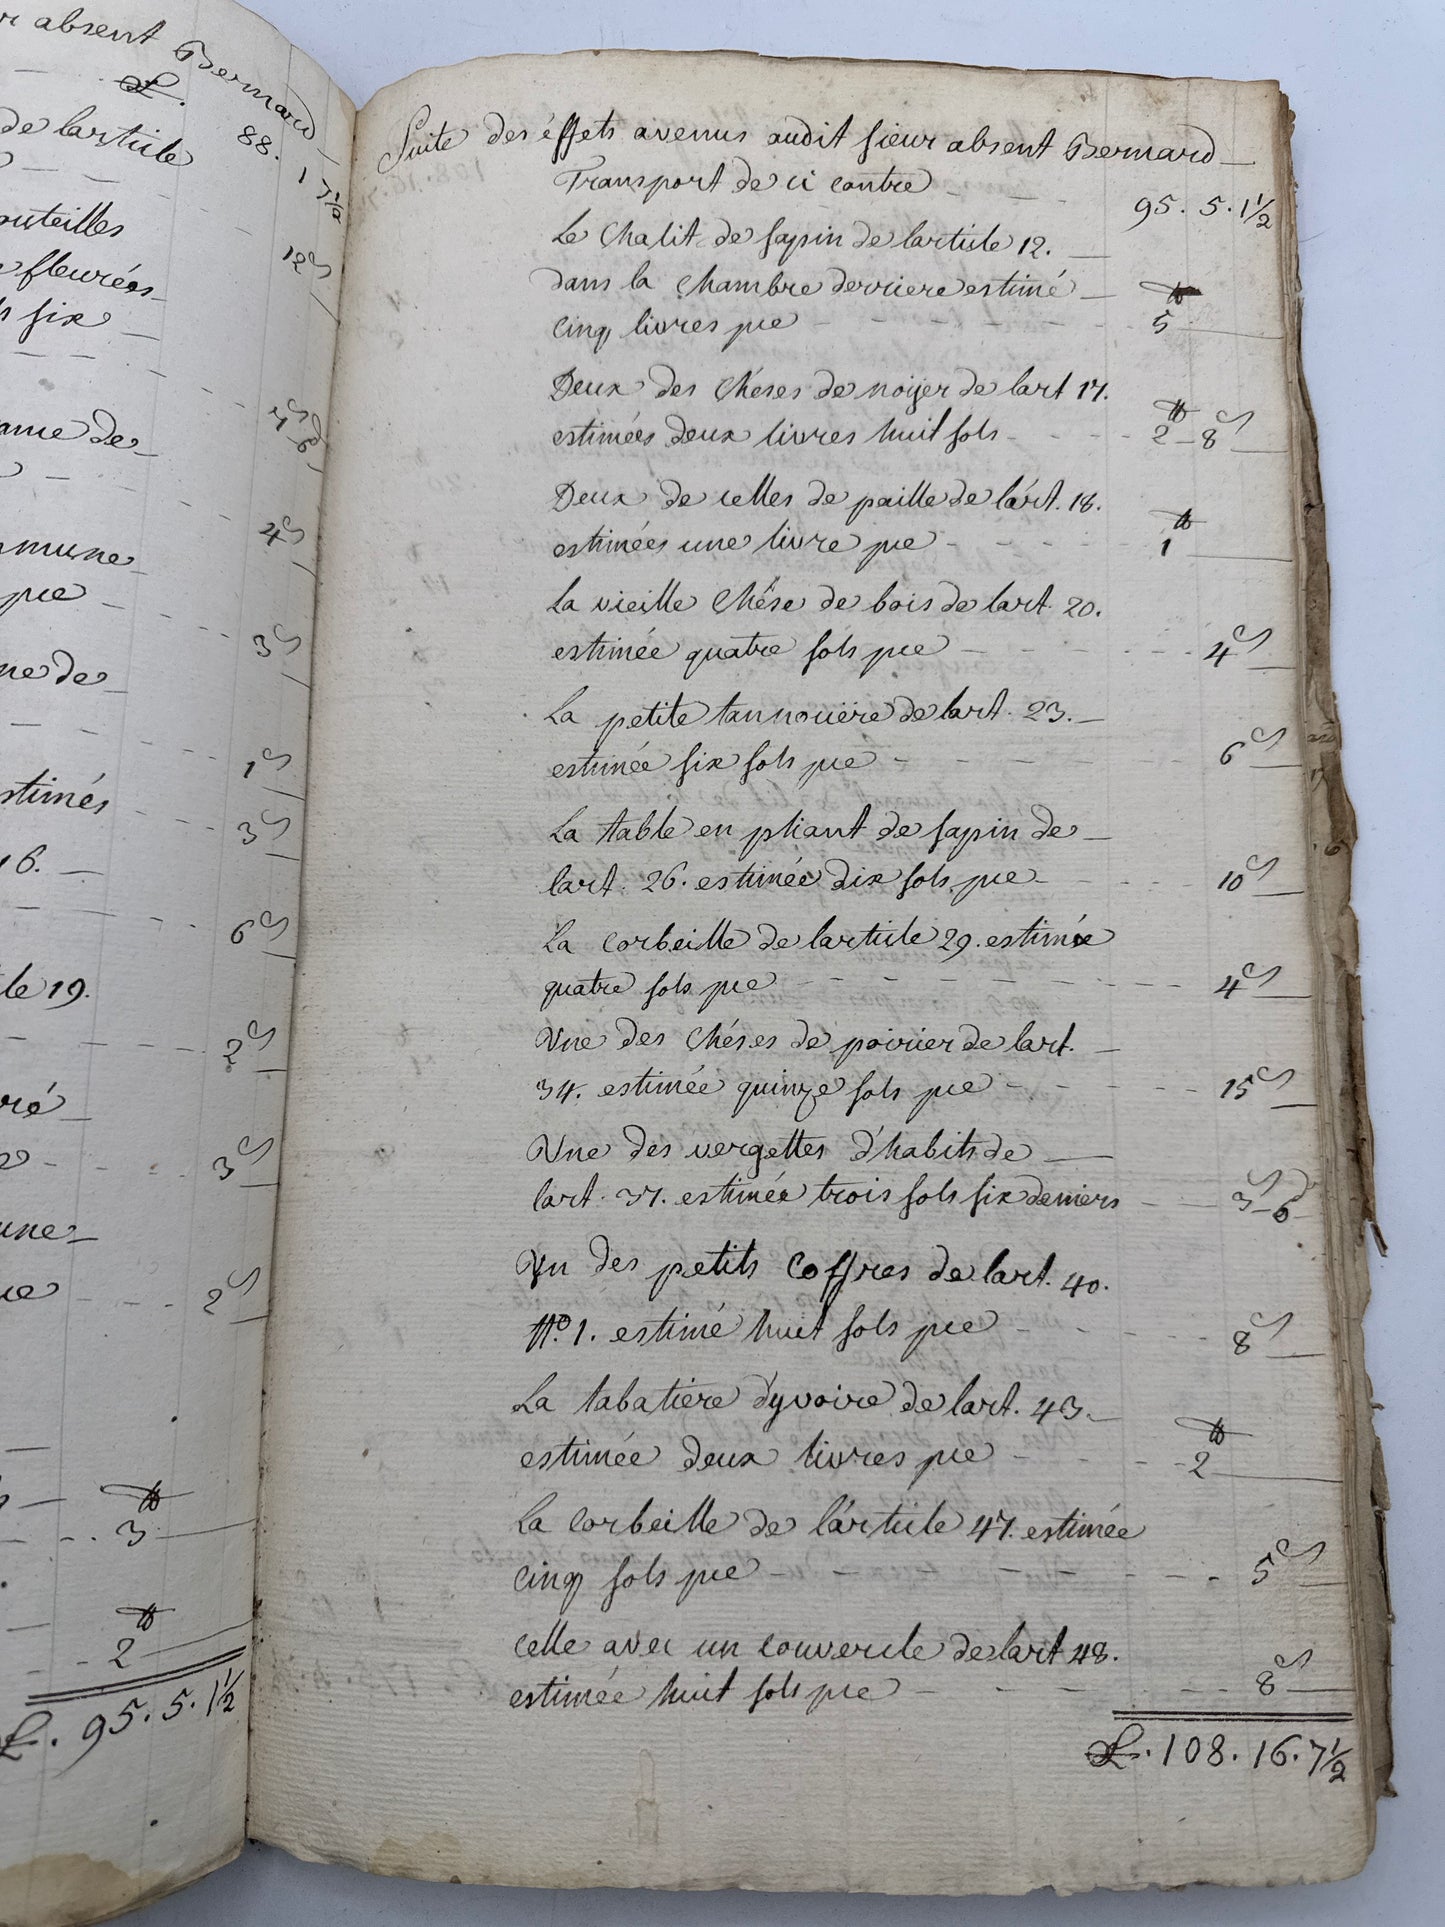 r absent Bernard
L. 88. 1 7½
de larticle
12 s
outeilles
fleurées
six
7 s 6
ame de
4 s
mmune
pce
3 s
ne de
1 s
stimés
3 s
16.
6 s
le 19.
2 s
ré
3 s
une
2 s
3 ₶
2 ₶
L. 95. 5. 1½
Suite des éffets avenus audit sieur absent Bernard
Transport de ci contre 95. 5. 1½
Le Chalit de sapin de larticle 12.
dans la Chambre derriere estimé
cinq livres pce 5 ₶
Deux des Chéses de noÿer de lart 17.
estimées deux livres huit sols 2 ₶ 8 s
Deux de celles de paille de lart. 18.
estimées une livre pce 1 ₶
La vieille Chése de bois de lart. 20.
estimée quatre sols pce 4 s
La petite tannoüere de lart. 23.
estimée six sols pce 6 s
La table en pliant de sapin de
lart. 26. estimée dix sols pce 10 s
La Corbeille de larticle 29. estimée
quatre sols pce 4 s
Une des Chéses de poirier de lart.
34. estimée quinze sols pce 15 s
Une des vergettes d'habits de
lart. 37. estimée trois sols six deniers 3 s 6 d
Un des petits Coffres de lart. 40.
No. 1. estimé huit sols pce 8 s
La tabatière d'yvoire de lart. 43.
estimée deux livres pce 2 ₶
La Corbeille de l'article 47. estimée
Cinq sols pce 5 s
Celle avec un couvercle de lart 48.
estimée huit sols pce 8 s
L. 108. 16. 7½